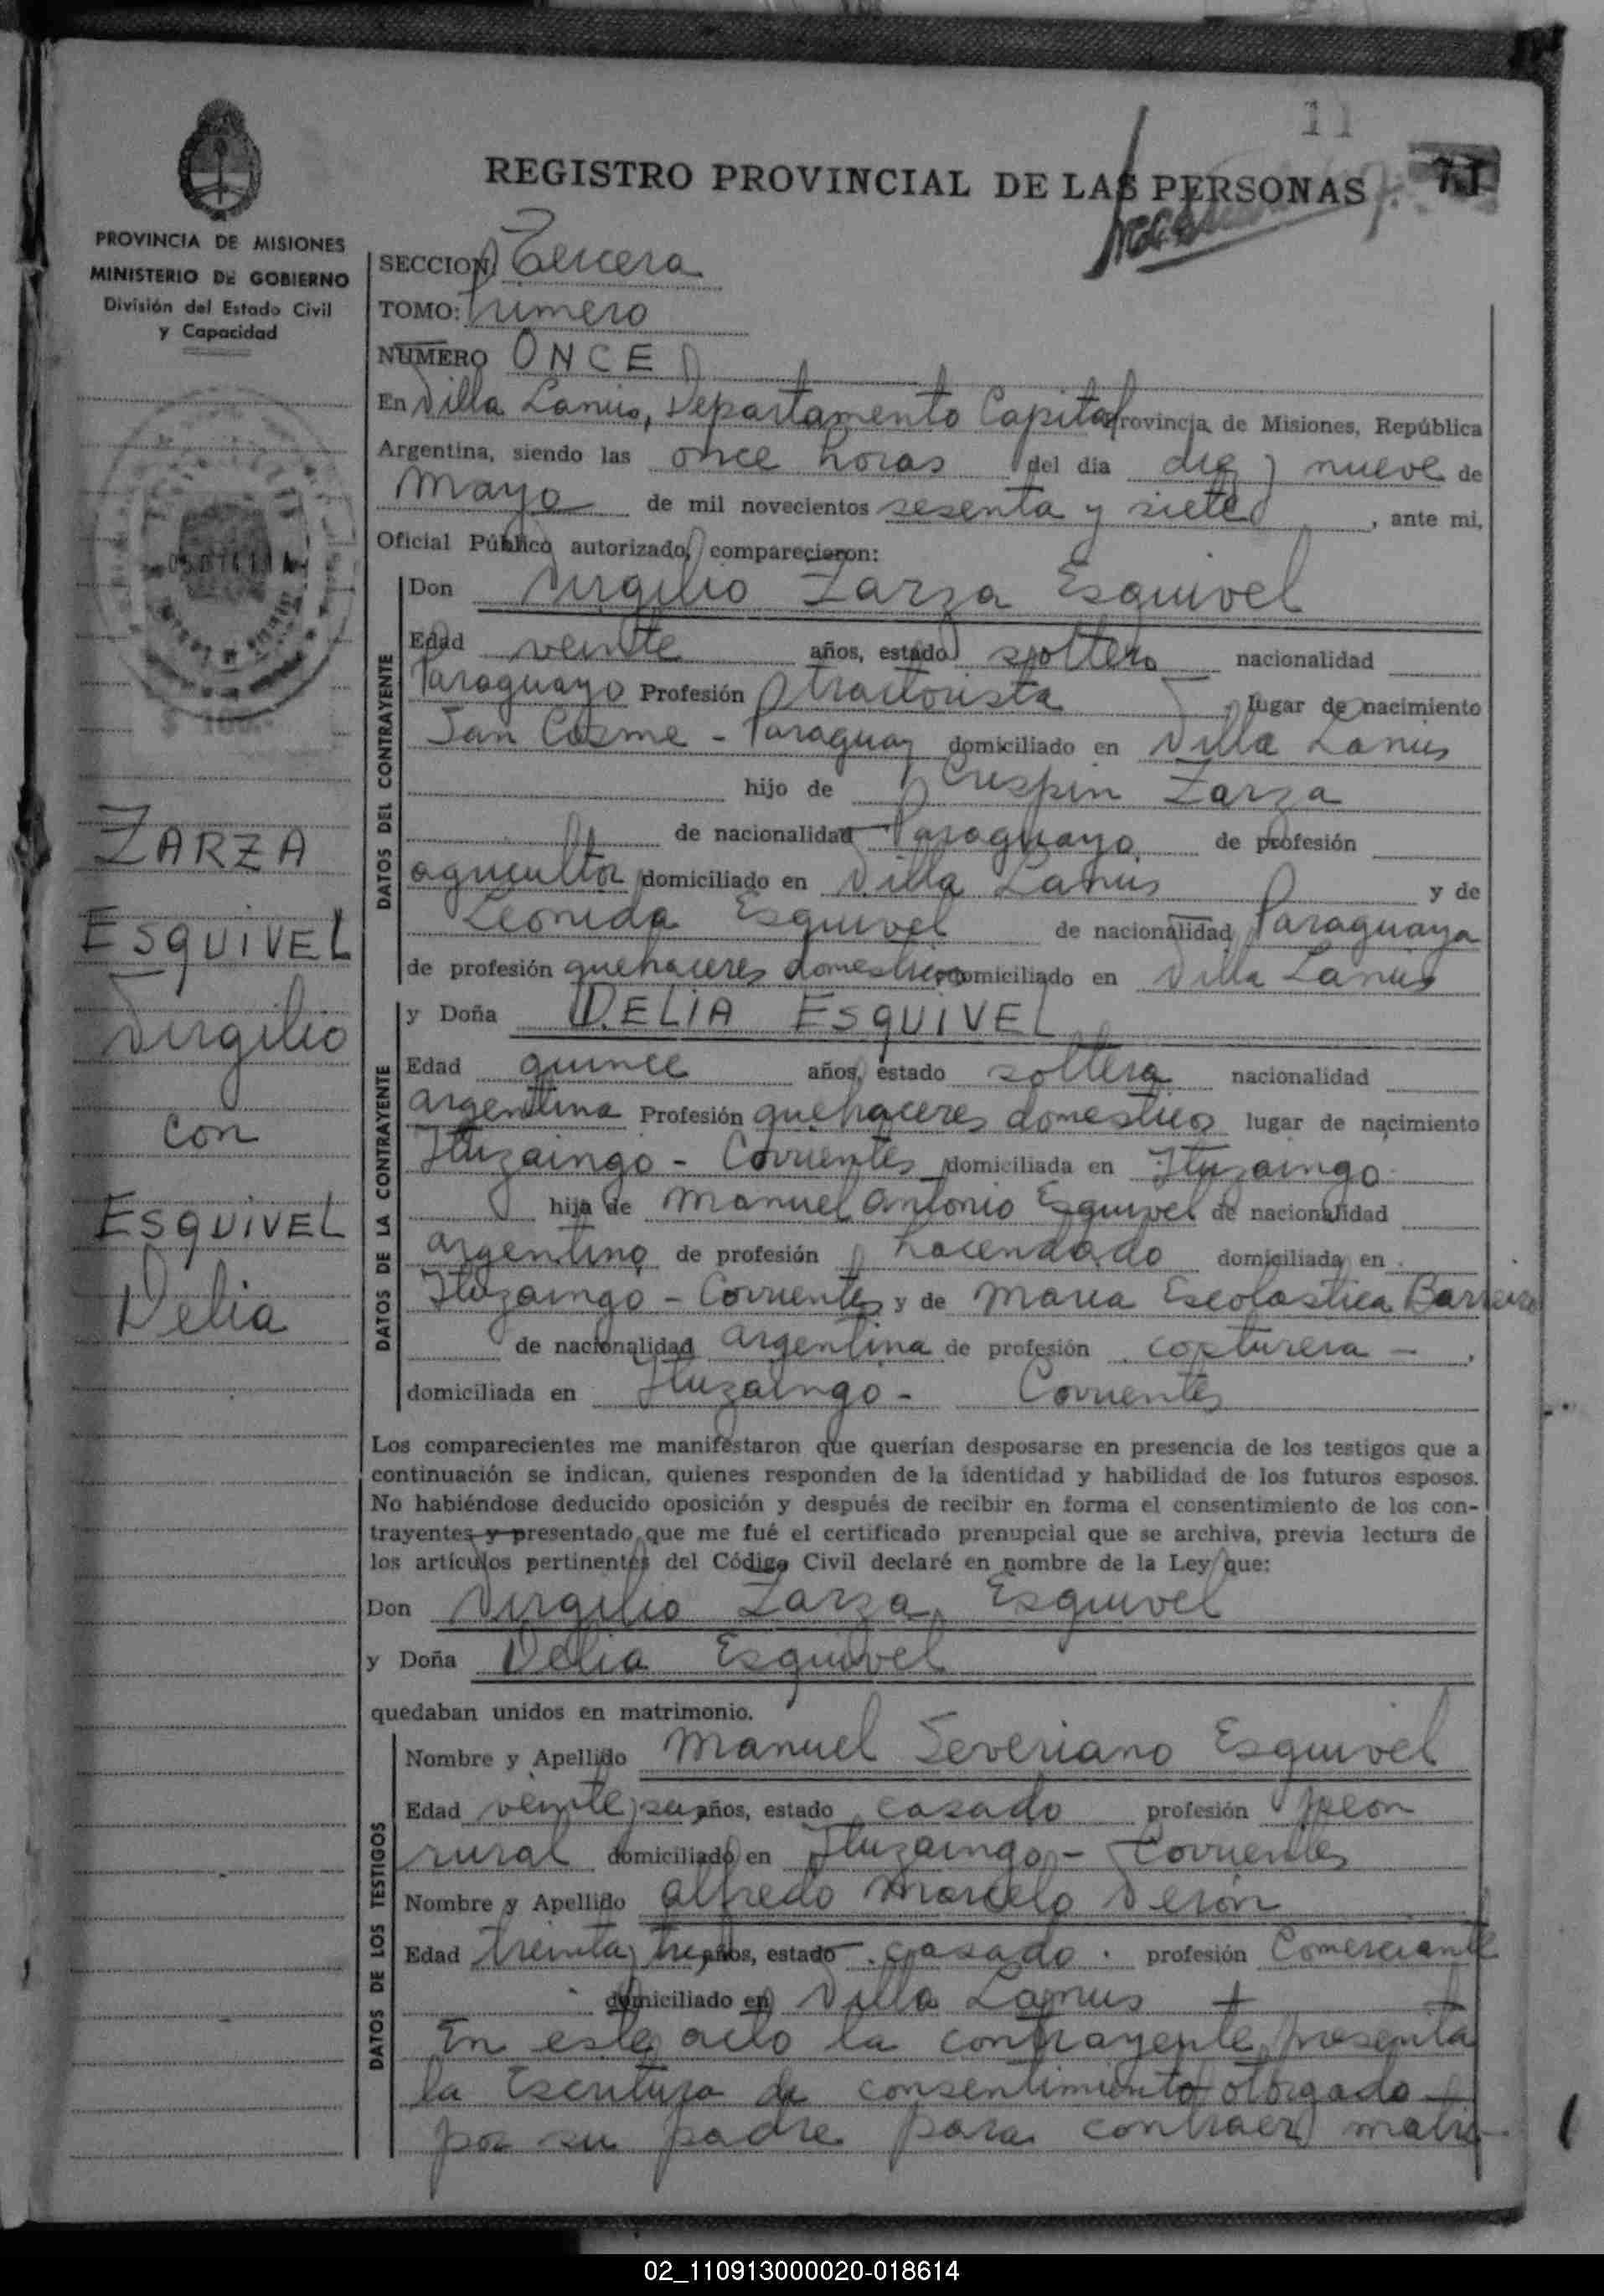 11
REGISTRO PROVINCIAL DE LAS PERSONAS
PROVINCIA DE MISIONES
MINISTERIO DE GOBIERNO
División del Estado Civil
y Capacidad
SECCION Tercera
TOMO: Primero
NUMERO ONCE
En Villa Lanus, Departamento Capital Provincia de Misiones, República
Argentina, siendo las once horas del dia diez y nueve de
Mayo de mil novecientos sesenta y siete, ante mi,
Oficial Público autorizado, comparecieron:
DATOS DEL CONTRAYENTE
Don Virgilio Zarza Esquivel
Edad veinte años, estado soltero nacionalidad
Paraguayo Profesión tractorista lugar de nacimiento
San Cosme - Paraguay domiciliado en Villa Lanus
hijo de Crespin Zarza
de nacionalidad Paraguayo de profesión
agricultor domiciliado en Villa Lanus y de
Leonida Esquivel de nacionalidad Paraguaya
de profesión quehaceres domesticos domiciliado en Villa Lanus
ZARZA
ESQUIVEL
Virgilio
con
ESQUIVEL
Delia
DATOS DE LA CONTRAYENTE
y Doña DELIA ESQUIVEL
Edad quince años, estado soltera nacionalidad
argentina Profesión quehaceres domesticos lugar de nacimiento
Ituzaingo - Corrientes domiciliada en Ituzaingo
hija de Manuel Antonio Esquivel de nacionalidad
argentino de profesión hacendado domiciliada en
Ituzaingo - Corrientes y de Maria Escolastica Barreiro
de nacionalidad argentina de profesión costurera - ,
domiciliada en Ituzaingo - Corrientes
Los comparecientes me manifestaron que querían desposarse en presencia de los testigos que a
continuación se indican, quienes responden de la identidad y habilidad de los futuros esposos.
No habiéndose deducido oposición y después de recibir en forma el consentimiento de los con-
trayentes y presentado que me fué el certificado prenupcial que se archiva, previa lectura de
los artículos pertinentes del Código Civil declaré en nombre de la Ley que:
Don Virgilio Zarza Esquivel
y Doña Delia Esquivel
quedaban unidos en matrimonio.
DATOS DE LOS TESTIGOS
Nombre y Apellido Manuel Severiano Esquivel
Edad veinte y seis años, estado casado profesión peon
rural domiciliado en Ituzaingo - Corrientes
Nombre y Apellido Alfredo Marcelo Verón
Edad treinta y tres años, estado casado profesión Comerciante
domiciliado en Villa Lanus
En este acto la contrayente presenta
la Escritura de consentimiento otorgado
por su padre para contraer matri-
02_110913000020-018614